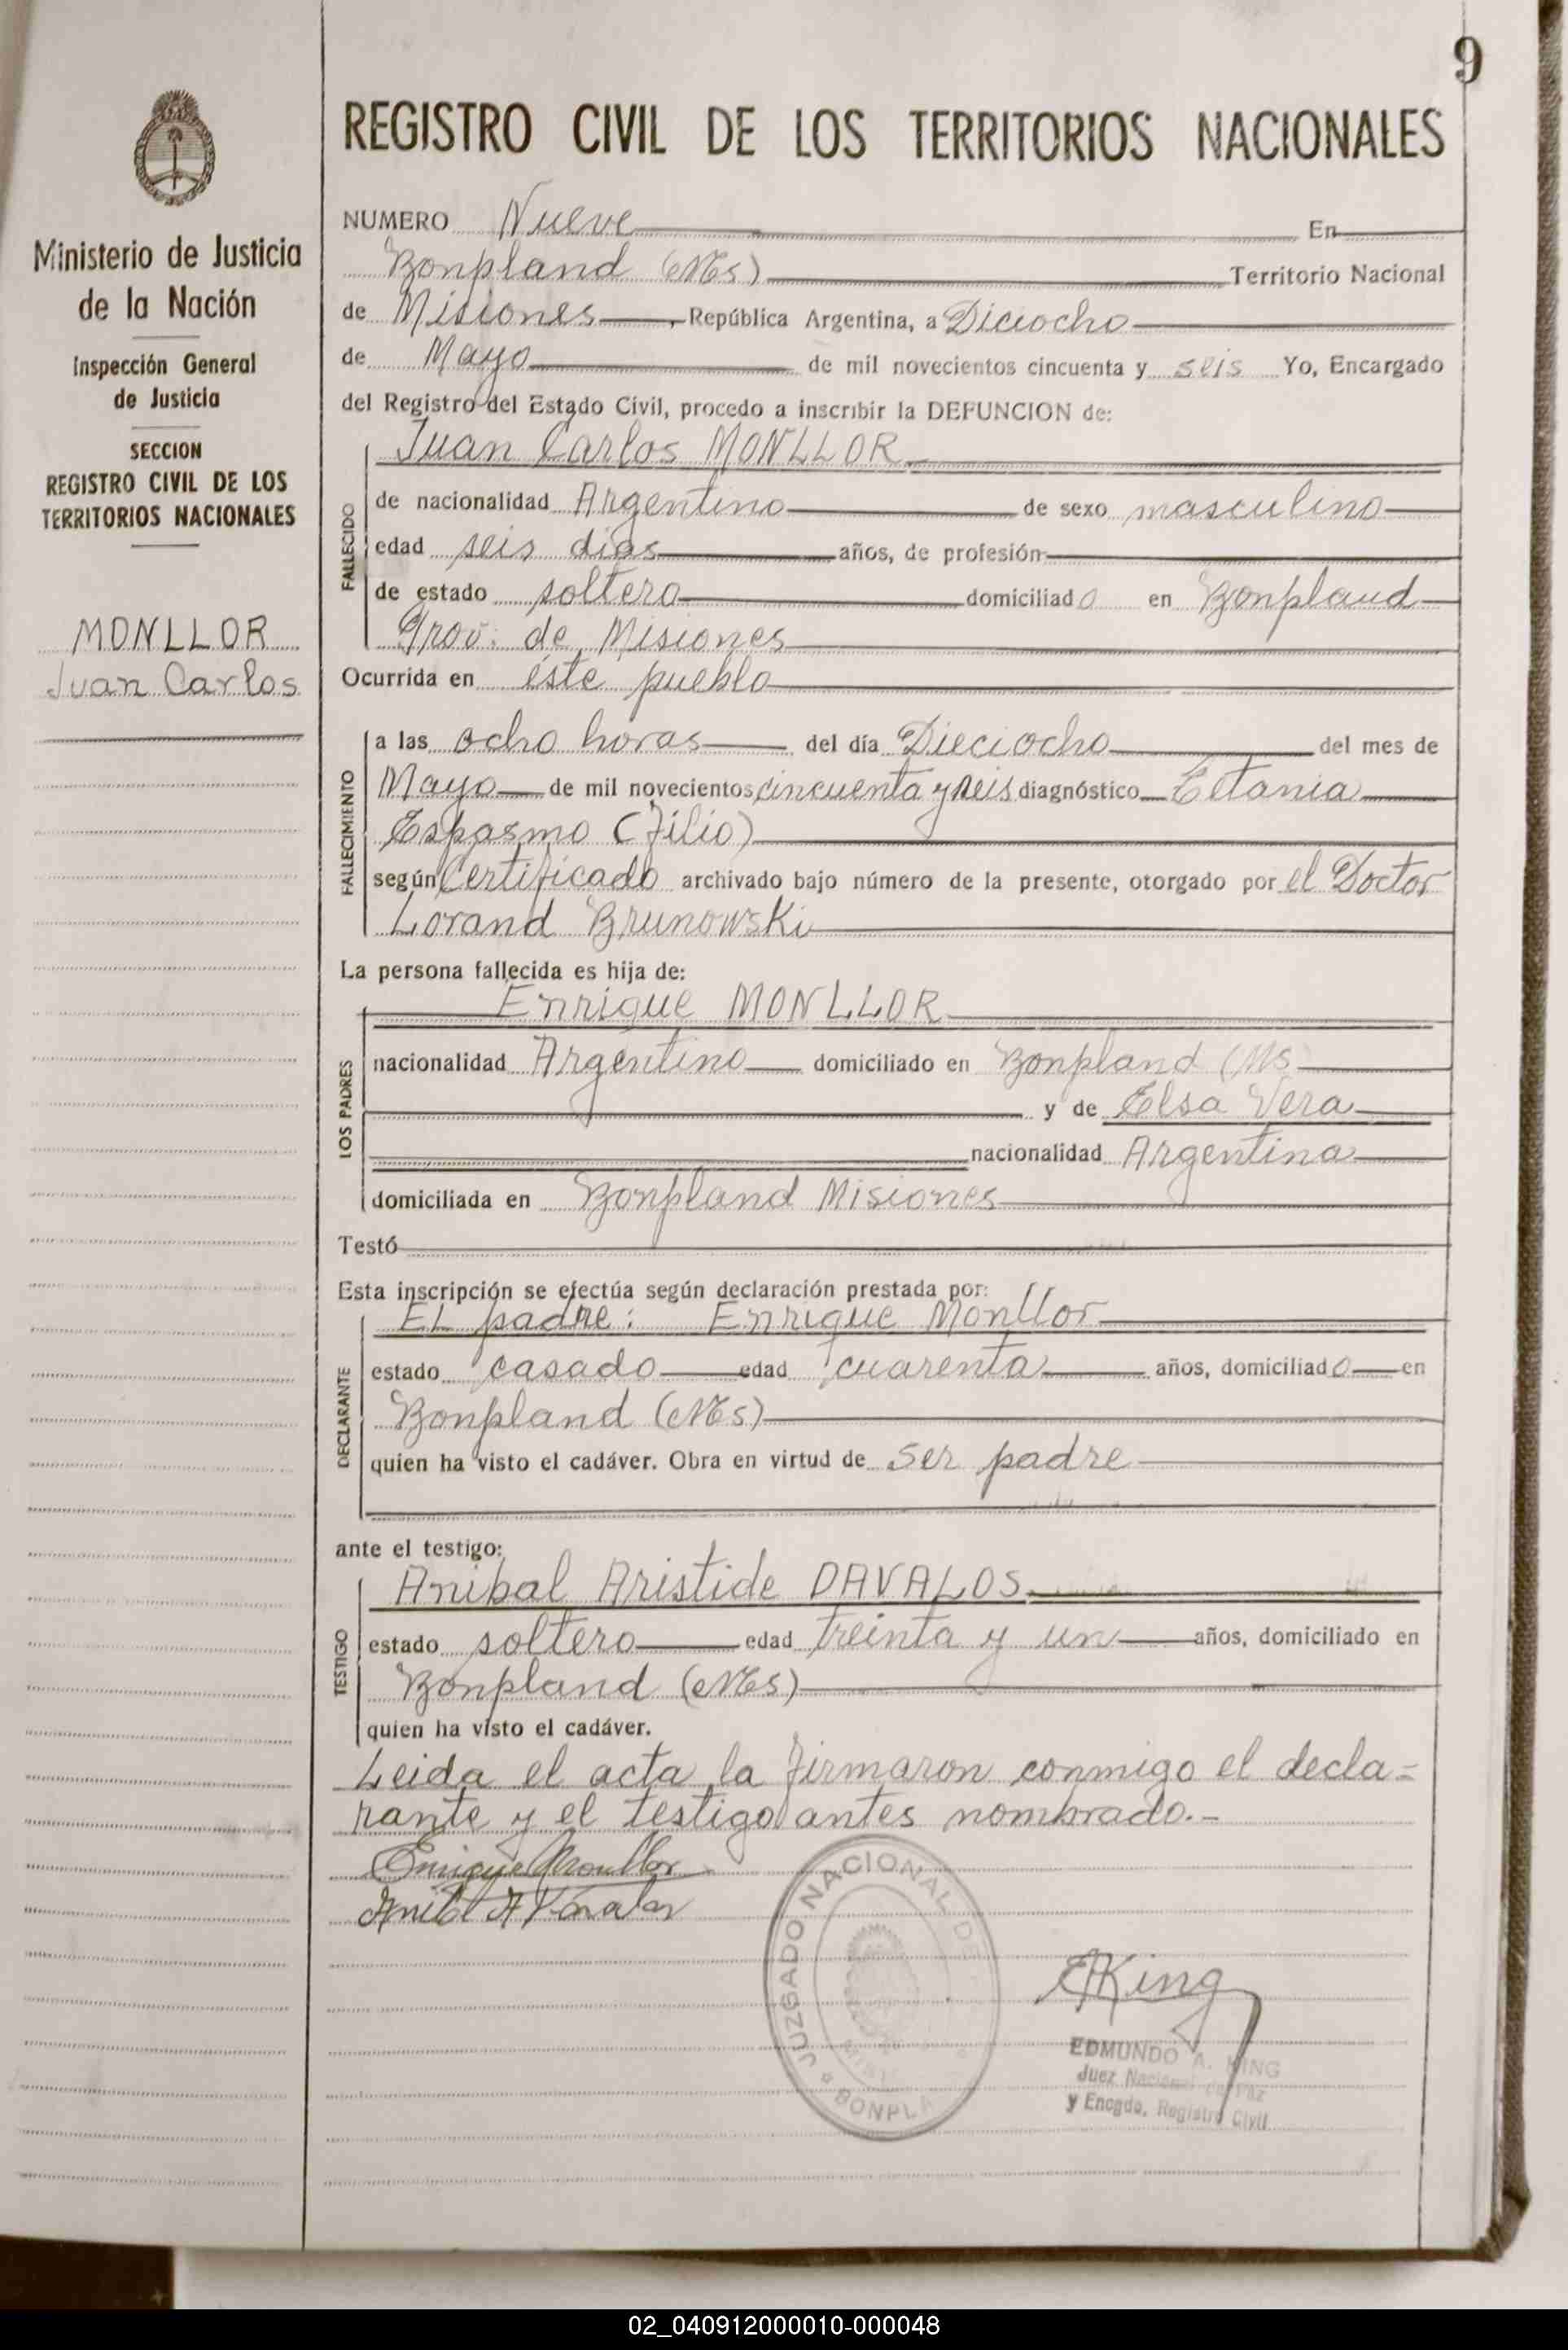 9
REGISTRO CIVIL DE LOS TERRITORIOS NACIONALES
Ministerio de Justicia
de la Nación
Inspección General
de Justicia
SECCION
REGISTRO CIVIL DE LOS
TERRITORIOS NACIONALES
MONLLOR
Juan Carlos
NUMERO Nueve En
Bonpland (Mes) Territorio Nacional
de Misiones, República Argentina, a Diciocho
de Mayo de mil novecientos cincuenta y seis Yo, Encargado
del Registro del Estado Civil, procedo a inscribir la DEFUNCION de:
FALLECIDO
Juan Carlos MONLLOR
de nacionalidad Argentino de sexo masculino
edad seis dias años, de profesión
de estado soltero domiciliado en Bonpland
Prov. de Misiones
Ocurrida en éste pueblo
FALLECIMIENTO
a las ocho horas del día Dieciocho del mes de
Mayo de mil novecientos cincuenta y seis diagnóstico Tetania
Espasmo (Filio)
según Certificado archivado bajo número de la presente, otorgado por el Doctor
Lorand Brunowski
La persona fallecida es hija de:
LOS PADRES
Enrique MONLLOR
nacionalidad Argentino domiciliado en Bonpland (Ms
y de Elsa Vera
nacionalidad Argentina
domiciliada en Bonpland Misiones
Testó
Esta inscripción se efectúa según declaración prestada por:
DECLARANTE
EL padre: Enrique Monllor
estado casado edad cuarenta años, domiciliado en
Bonpland (Mes)
quien ha visto el cadáver. Obra en virtud de ser padre
ante el testigo:
TESTIGO
Anibal Aristide DAVALOS
estado soltero edad treinta y un años, domiciliado en
Bonpland (Mes)
quien ha visto el cadáver.
Leida el acta la firmaron conmigo el decla=
rante y el testigo antes nombrado.-
Enrique Monllor
JUZGADO NACIONAL DE
BONPLA
EAKing
EDMUNDO A. KING
Juez Nacional de Paz
y Encgdo. Registro Civil
02_040912000010-000048